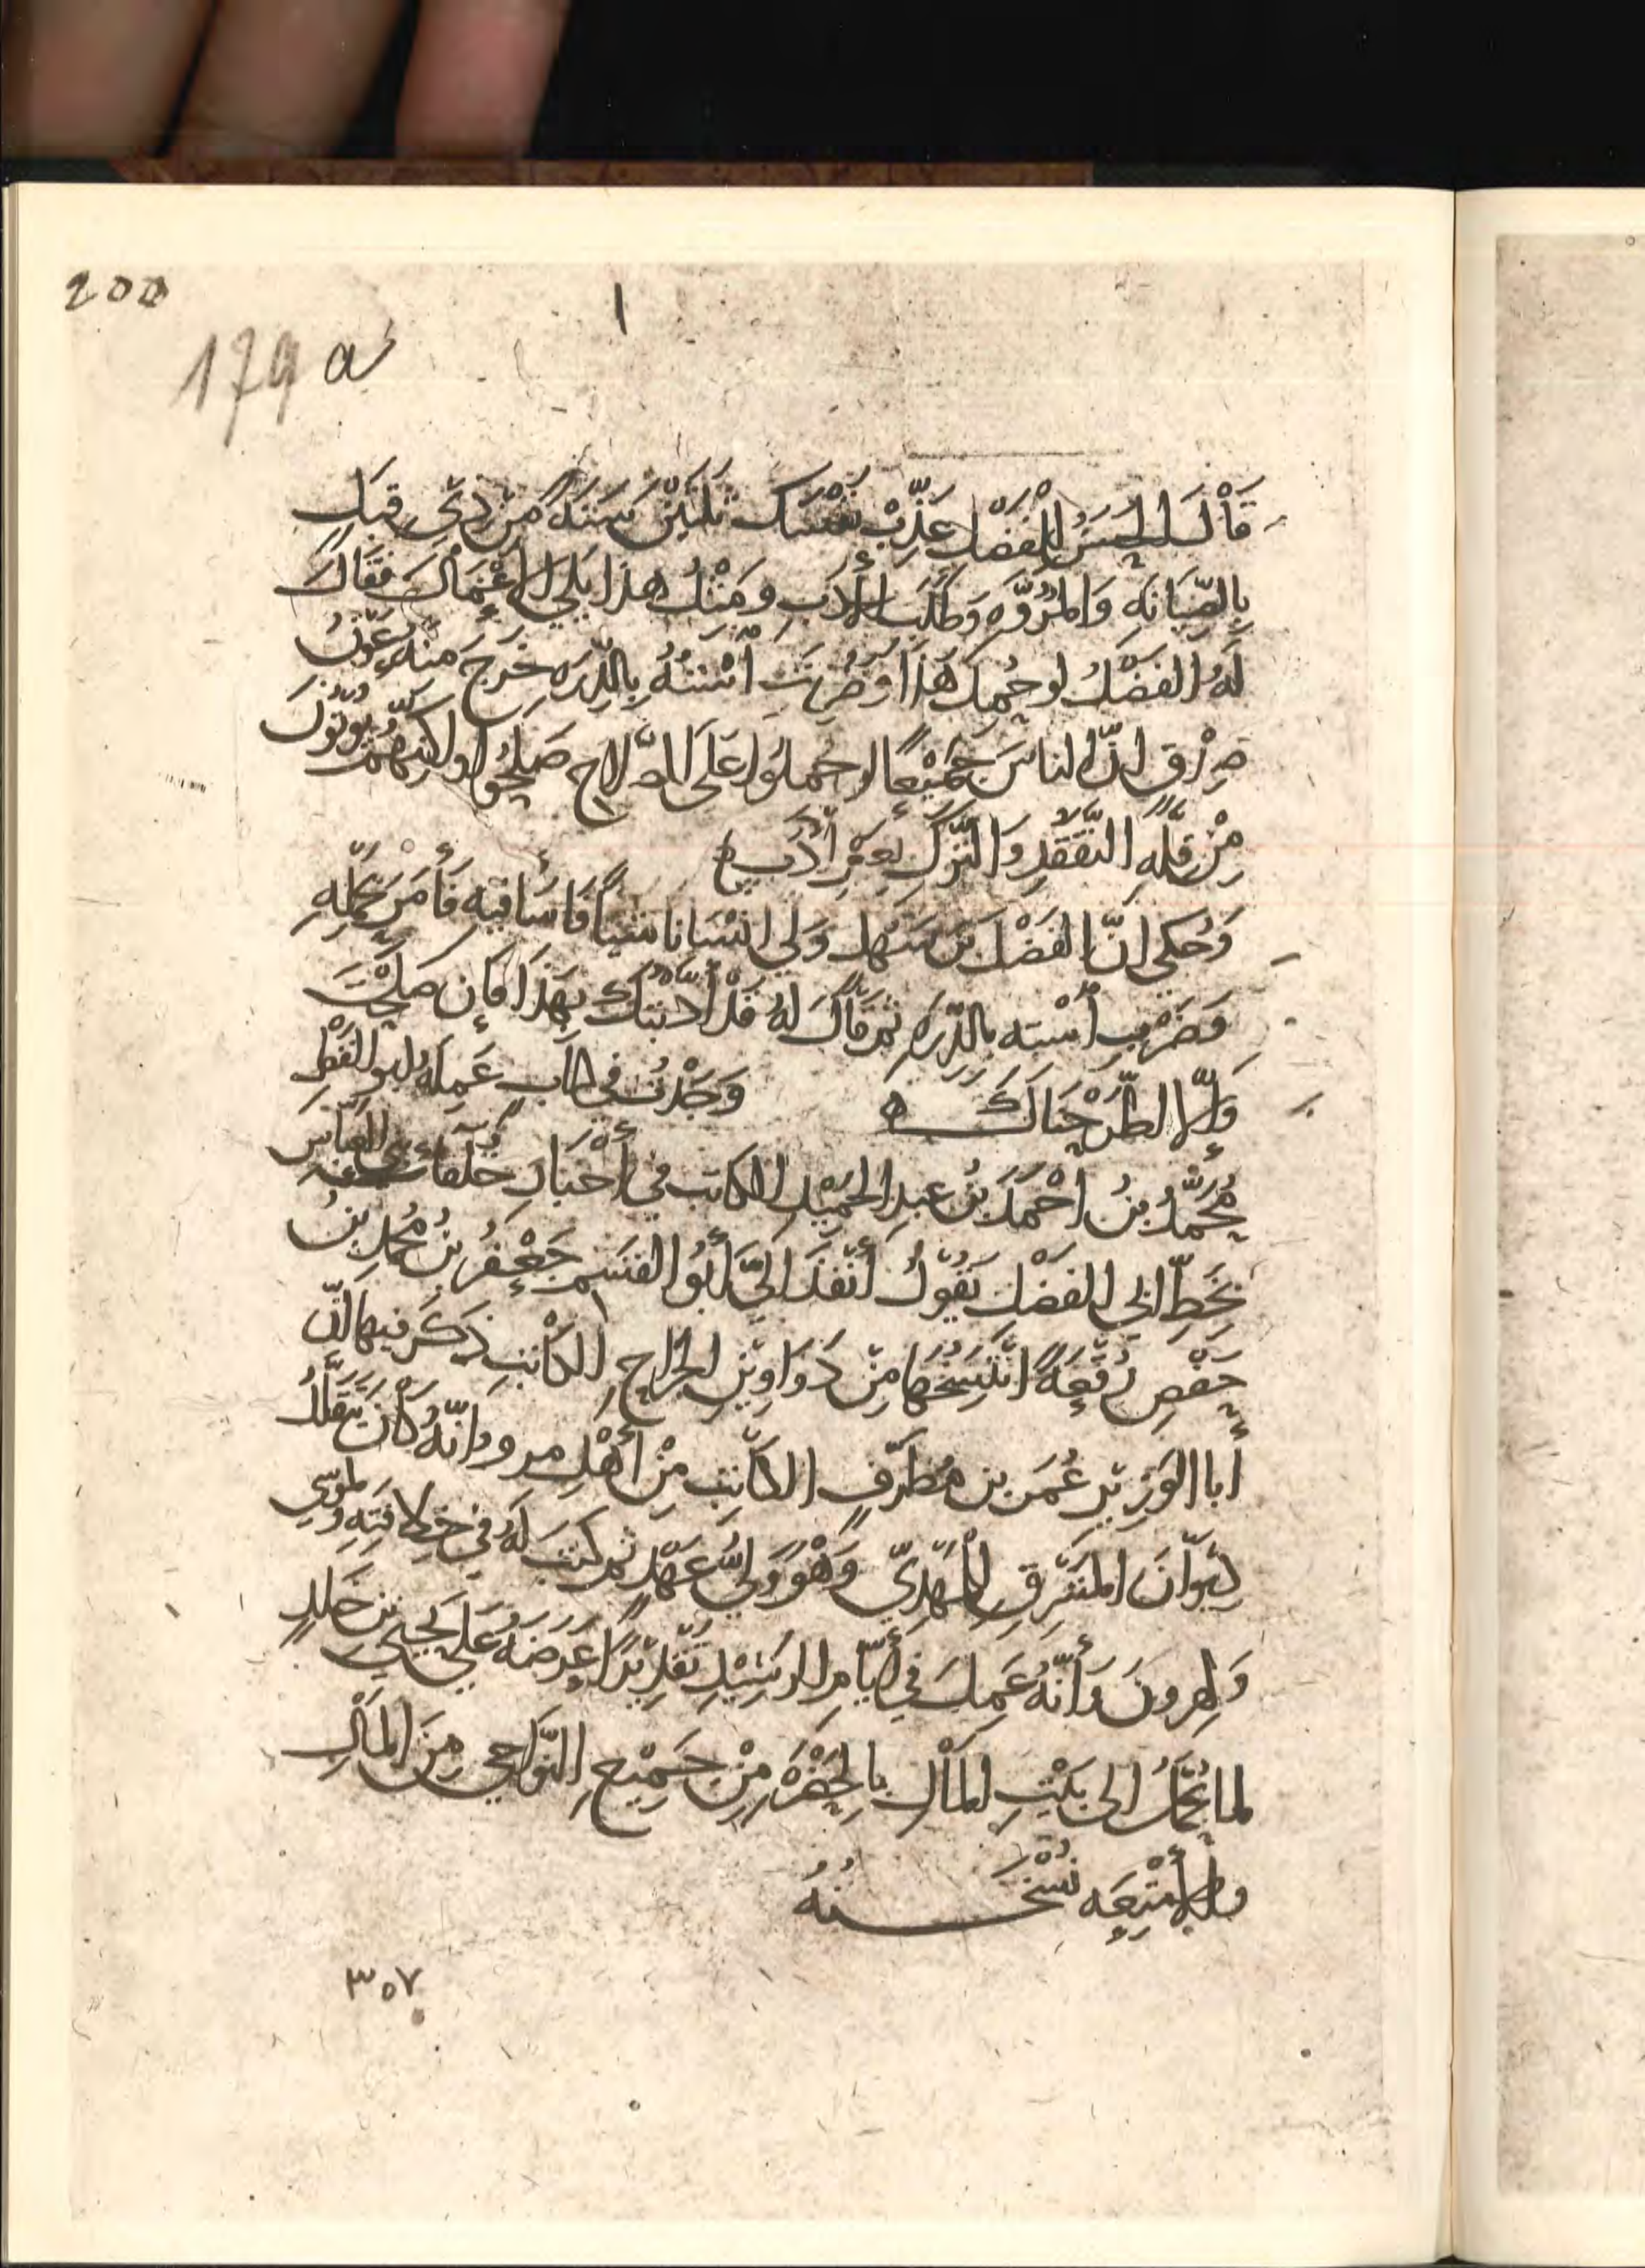 200
١
179 a
قَاْلَ الحسنُ للفضْل عَذّبْ نَفْسَك ثلثيْن سَنَةً مَنْ ذيّ قبَلٍ
بالصِّيَانَةِ وَالمرُوّةِ وَطَلَب الأدَبِ وَمِثْلُ هذا يلي الأعْمَالَ فقَالَ
لَهُ الفَضْلُ لو حُمِلَ هَذا وَضُرِبَت اسْتُهُ بِالدِّرَه خَرَجَ منه عَوْنُ
صِدْقٍ انّ الناسَ جَمِيْعًا لو حُملوُا عَلَى الصّلاح صَلَحُوا ولكنّهُمْ يُؤتَوْنَ
مِنْ قِلّةِ التَّفَقّدِ وَالتَّرْكِ بِغَيْرِ أدَبٍ ه
وَحُكي انّ الفَضْلَ بنَ سَهْل وَلي انْسَانا شيئًا فَأسَا فيْهِ فَأمَرَ بحَمْلِهِ
وَضَرْبِ اسْتِه بالدِّرَه ثم قاَلَ لهُ قَدْ أدّبْتُكَ بِهَذَا فَإن صَلَحْتَ
وَإلّا اطَّرَحْنَاكَ ه وَجَدْتُ في كتابٍ عَمِلَهُ ابو الفَضْلِ
مُحَمَّدُ بنُ احْمَدَ بنُ عبدِ الحَمِيْدِ الكاتب في أخْبَارِ خُلَفَاء بني العبّاسِ
بخَطِّ ابي الفَضْلِ يَقُوْلُ أنْفَذَ اليَّ أبُو القسَم جَعْفَرُ بنُ محُمدِ بنُ
حَفْصٍ رُقْعَةً انْتَسَخَهَا مِنْ دَوَاوِيْنِ الخَرَاجِ الكاتبِ ذَكَرَ فيها أنّ
أبا الوَزِيْرِ عُمَرَ بن مُطَرّفٍ الكاتِبَ مِنْ أهْلِ مرو وانّهُ كاْنَ يَتقَلّدُ
دِيْوَانَ المَشْرِقِ لِلْمَهْدِيّ وَهْوَ وَلِيُّ عَهْدٍ ثم كَتَبَ لَهُ في خِلافَتِهِ ولموسَى
وَلِهرونَ وَأنّهُ عَمِلَ في أيّامِ الرشِيْدِ تَقْدِيْرًا عَرَضَهُ عَلى يَحْيَى بن خَلدٍ
لما يُحْمَلُ الى بَيْتِ المَالِ بالحَضْرَةِ مِنْ جَمِيْعِ النَّوَاحِي مِنَ المَالِ
والأمْتِعَه نُسْخَتُهُ
٣٥٧